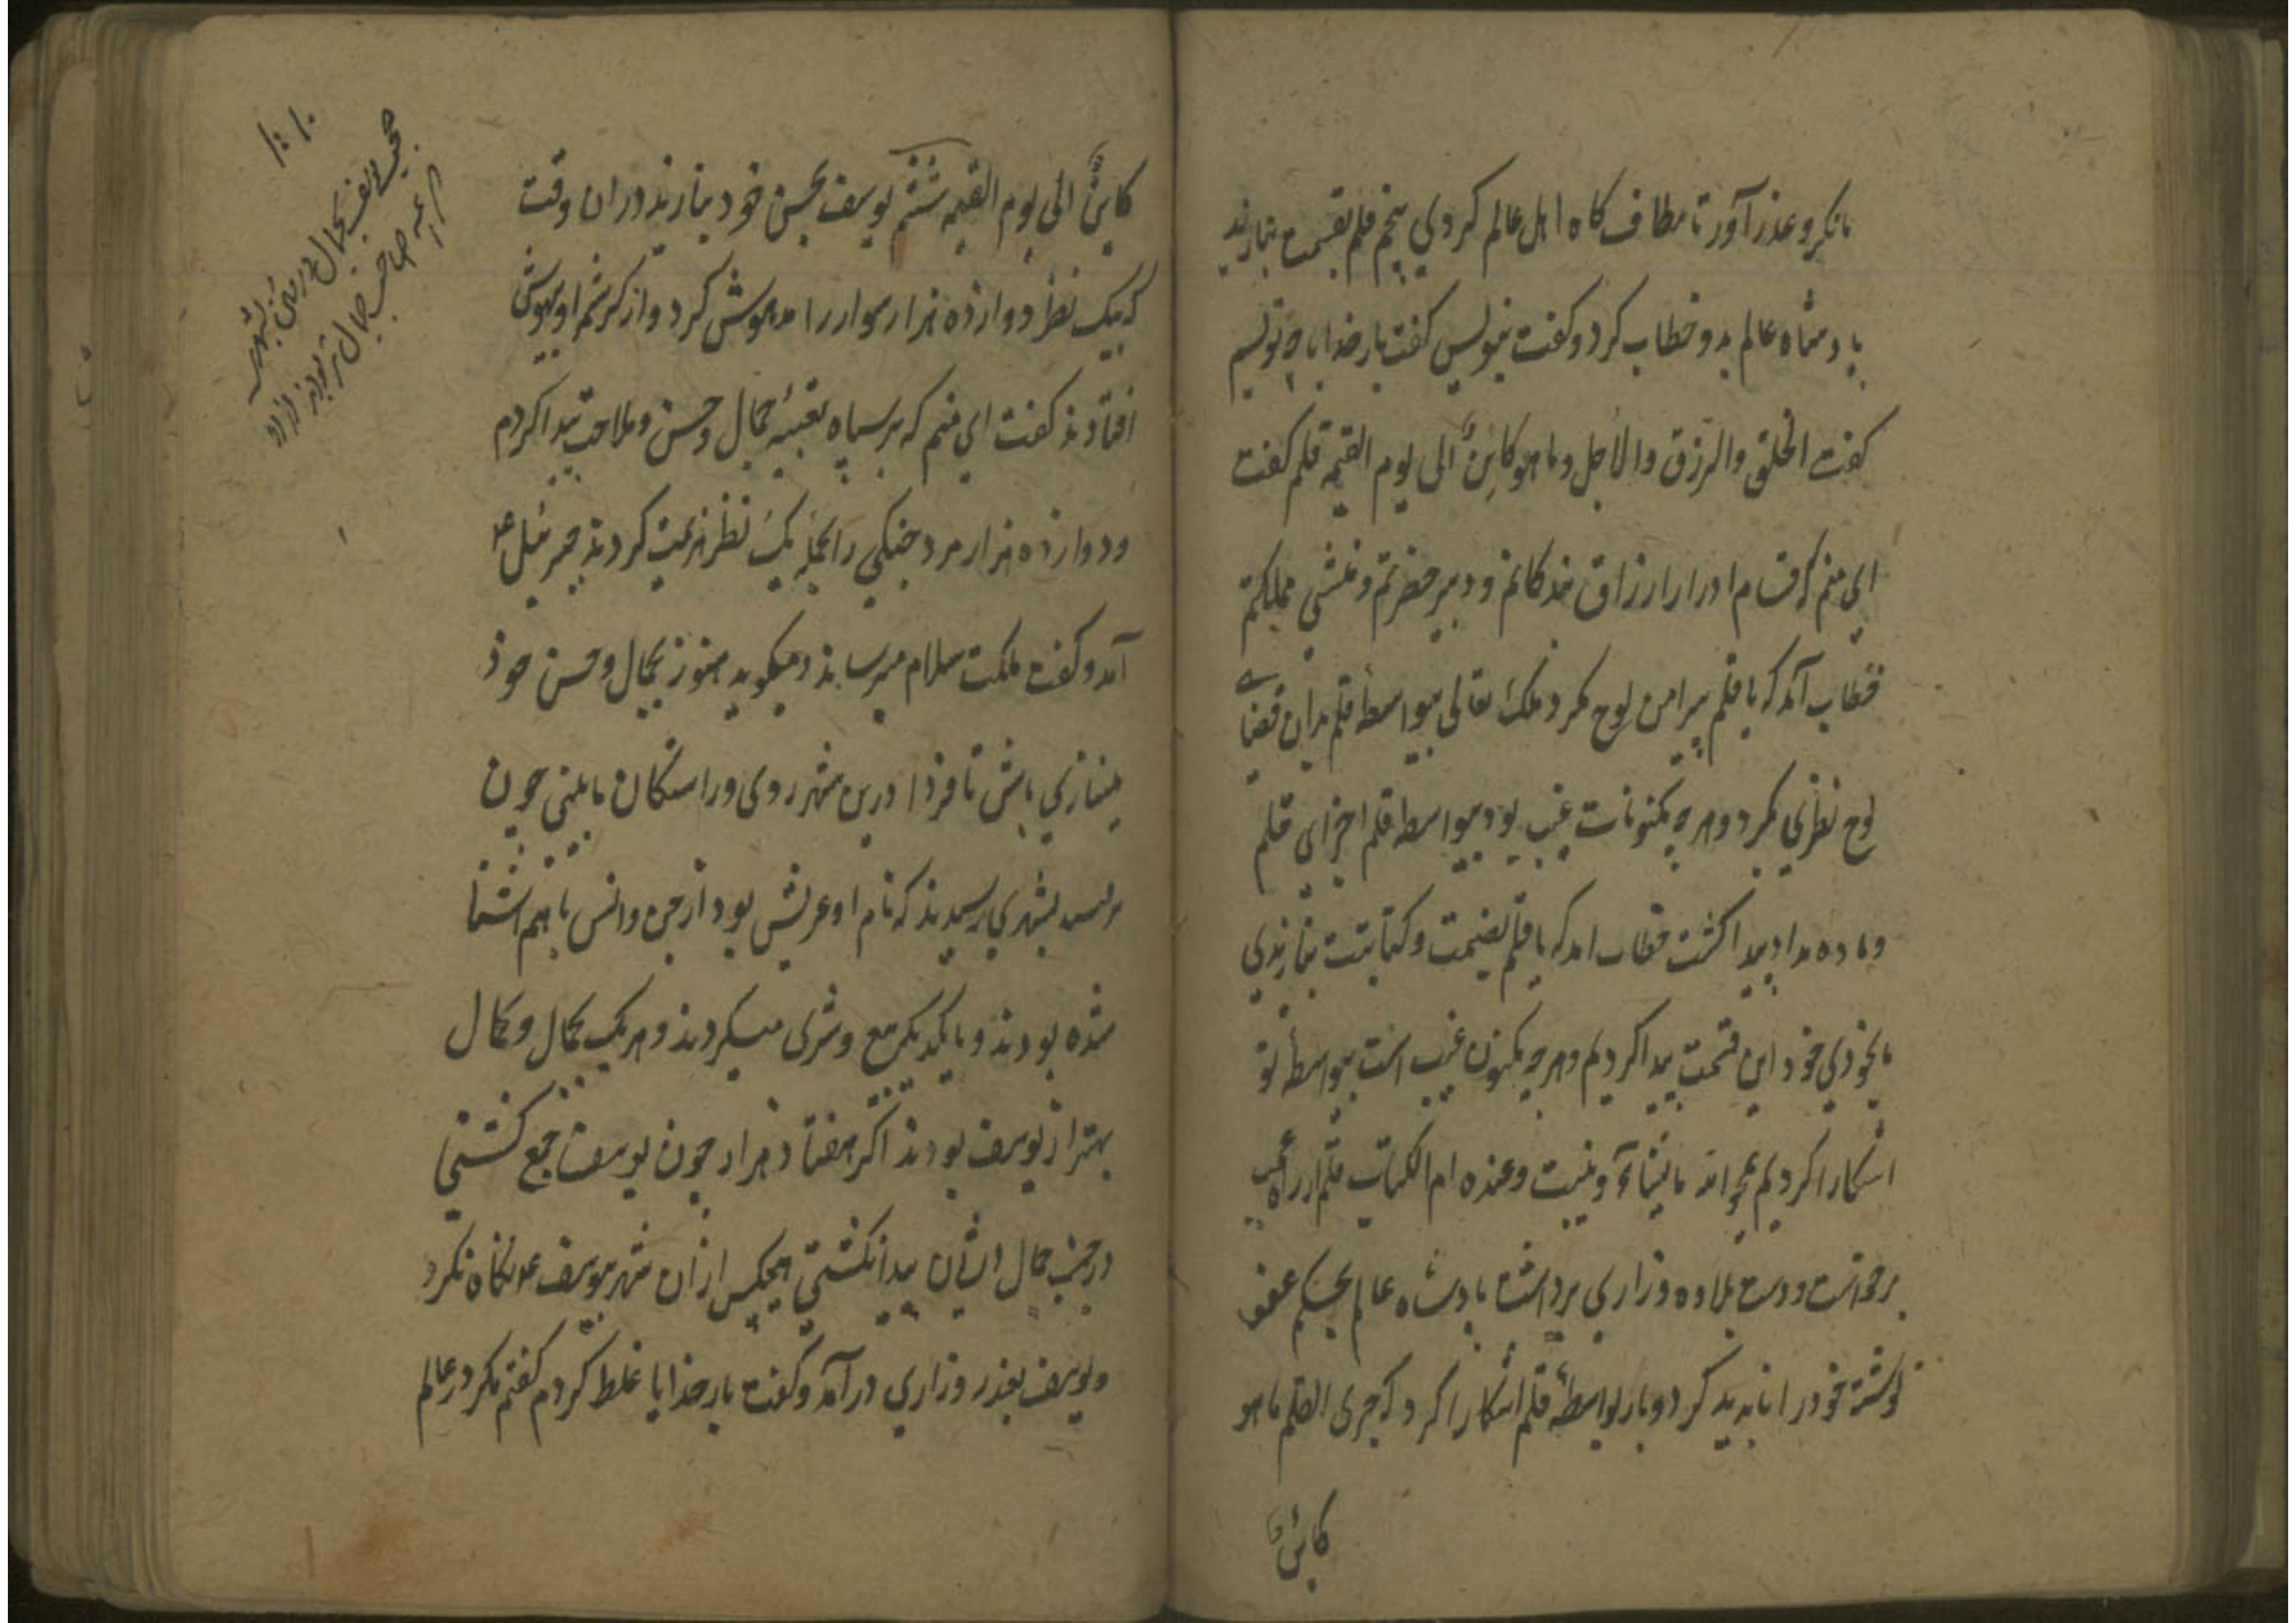 بانکر و عذر آور تا مطاف کاه اهل عالم کردی پنجم قلم بقسمت بنازید
بادشاه عالم بدو خطاب کرد و کفت بنویس کفت بار خدایا چه نویسم
کفت الخلق والرزق والاجل وما هو کاینٌ الی یوم القیمه قلم کفت
این منم که قسام ادرار ارزاق بندکانم و دبیر حضرتم و منشی مملکتم
خطاب آمد که یا قلم پیرامن لوح مکرد ملک تعالی بیواسطه قلم بدان فضای
لوح نظری بکرد و هرچه مکنونات غیب بود بیواسطه قلم اجزای قلم
و ماده مداد پیدا کشت خطاب امد که یا قلم بقسمت و کتابتت بنازیدی
ما بخودی خود این قسمت پیدا کردیم و هرچه مکنون غیب است بیواسطه تو
اشکارا کردیم یمحوا الله ما یشآء ویثبت وعنده ام الکتاب قلم از راه
برخواست و دست بلاوه و زاری برداشت بادشاه عالم بحکم عفو
نوشته خود را نابدید کرد و باز بواسطهٔ قلم اشکارا کرد که جری القلم بما هو
کائن
کاینٌ الی یوم القیمه ششم یوسف بحسن خود بنازید در ان وقت
که بیک نظر دوازده هزار سوار را مدهوش کرد و از کرشم او بیهوش
افتادند کفت این منم که بر سپاه تعبیهٔ جمال و حسن و ملاحت پیدا کردم
و دوازده هزار مرد جنکی را بحمله یک نظر هزیمت کردند جبرئیل ع
آمد و کفت ملکت سلام میرساند و میکوید هنوز بجمال و حسن خود
مینازی باش تا فردا درین شهر روی و راستکان ما بینی چون
برسید بشهری رسیدند که نام او عریش بود از جن و انس باهم اشنا
شده بودند و بایکدیکر بیع و شری میکردند و هریک بجمال و کمال
بهتر از یوسف بودند اکر هفتاد هزار چون یوسف جمع کشتی
در جنب جمال ایشان پیدا نکشتی هیچکس از ان شهر بیوسف ع نکاه نکرد
و یوسف بعذر و زاری درآمد و کفت بار خدایا غلط کردم کفتم مکر در عالم